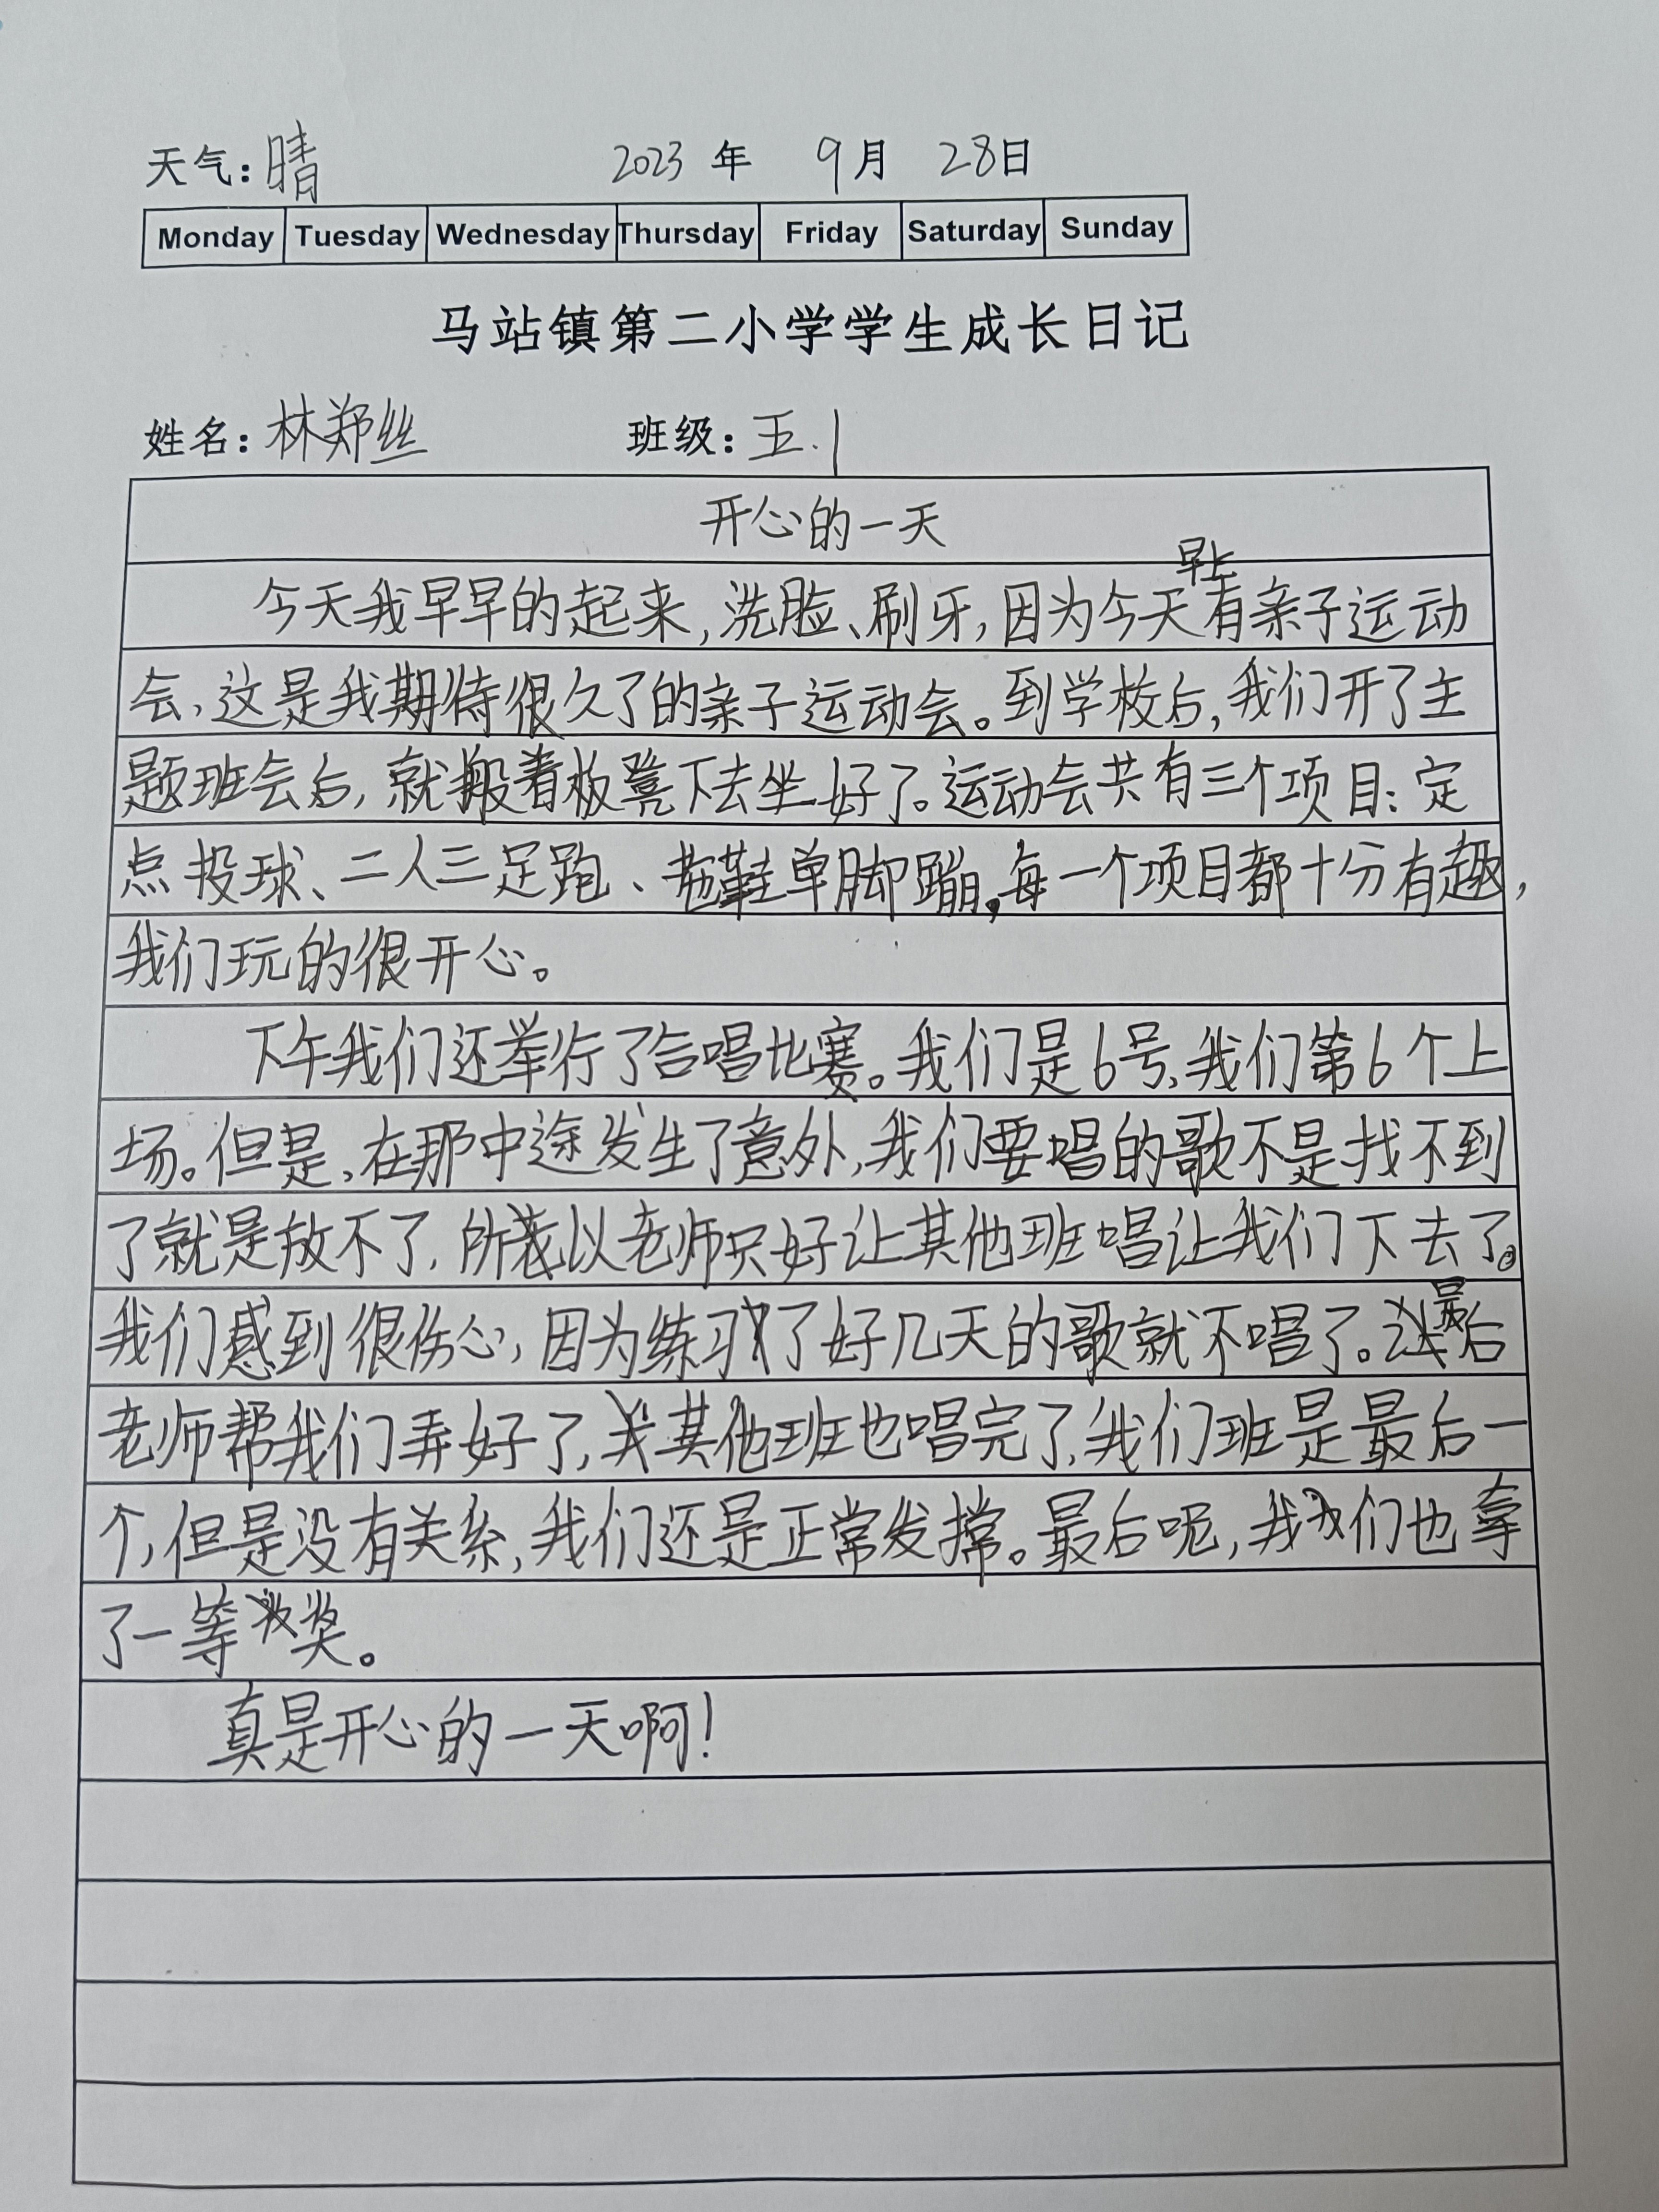 天气：晴 2023 年 9 月 28日
Monday Tuesday Wednesday Thursday Friday Saturday Sunday
马站镇第二小学学生成长日记
姓名：林郑丝 班级：五.1
开心的一天
早上
今天我早早的起来，洗脸、刷牙，因为今天有亲子运动
会，这是我期待很久了的亲子运动会。到学校后，我们开了主
题班会后，就搬着板凳下去坐好了。运动会共有三个项目：定
点投球、二人三足跑、拖鞋单脚蹦，每一个项目都十分有趣，
我们玩的很开心。
下午我们还举行了合唱比赛。我们是6号，我们第6个上
场。但是，在那中途发生了意外，我们要唱的歌不是找不到
了就是放不了，所以老师只好让其他班唱让我们下去了。
我们感到很伤心，因为练习了好几天的歌就不唱了。最后
老师帮我们弄好了，其他班也唱完了，我们班是最后一
个，但是没有关系，我们还是正常发撑。最后呢，我们也拿
了一等奖。
真是开心的一天啊！